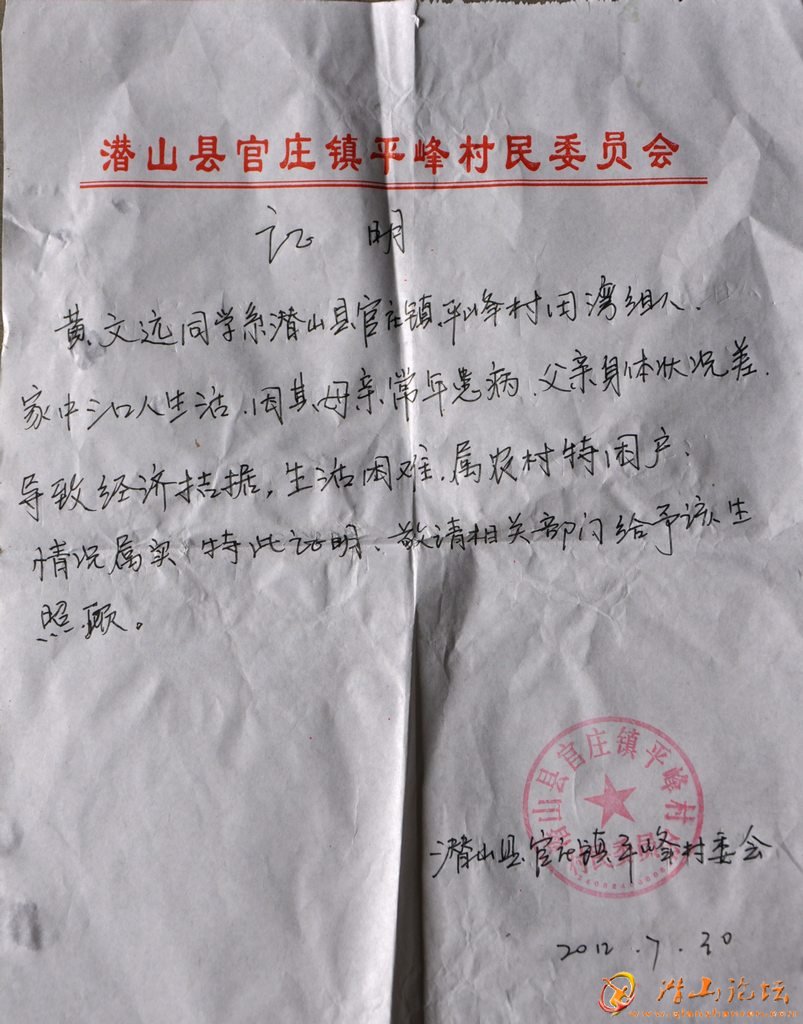 潜山县官庄镇平峰村民委员会
证 明
黄文远同学系潜山县官庄镇平峰村田湾组人、
家中三口人生活.因其母亲常年患病、父亲身体状况差.
导致经济拮据,生活困难.属农村特困户.
情况属实 特此证明、敬请相关部门给予该生
照顾。
潜山县官庄镇平峰村
村民委员会
潜山县官庄镇平峰村委会
2012.7.30
潜山论坛